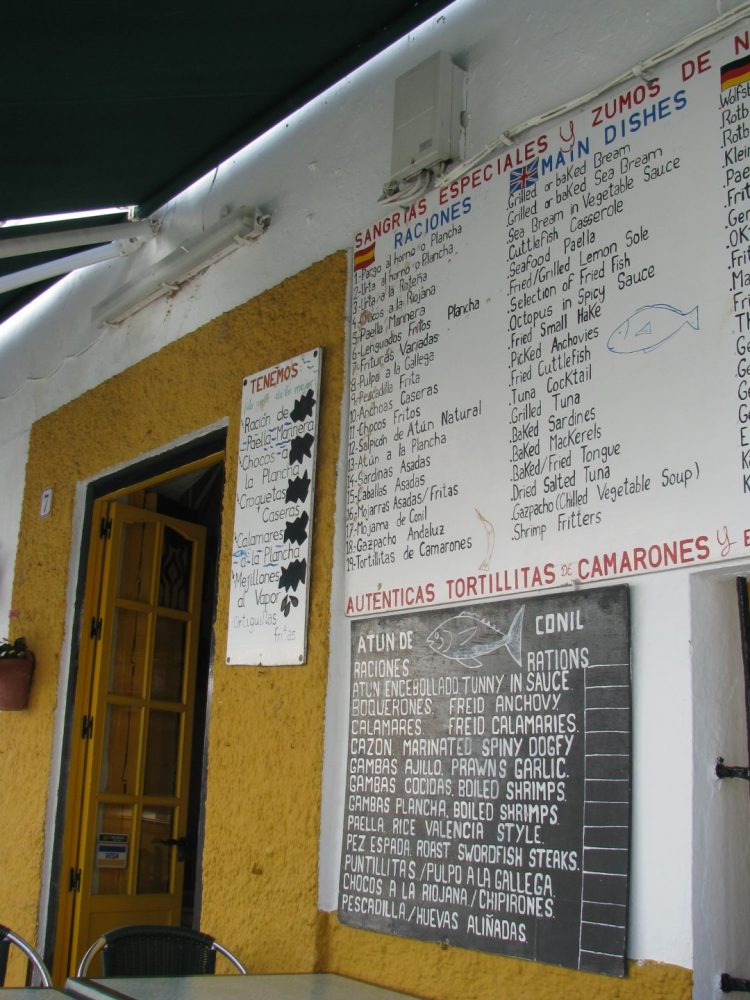 SANGRIAS ESPECIALES Y ZUMOS DE
RACIONES
1-Pargo al horno o Plancha
2-Urta al horno o Plancha
3-Urta a la Roteña
4-Chocos a la Riojana
5-Paella Marinera
6-Lenguados Fritos Plancha
7-Frituras Variadas
8-Pulpo a la Gallega
9-Pescadilla Frita
10-Anchoas Caseras
11-Chocos Fritos
12-Salpicón de Atún Natural
13-Atún a la Plancha
14-Sardinas Asadas
15-Caballas Asadas
16-Mojarras Asadas/Fritas
17-Mojama de Conil
18-Gazpacho Andaluz
19-Tortillitas de Camarones
MAIN DISHES
.Grilled or baKed Bream
.Grilled or baKed Sea Bream
.Sea Bream in Vegetable Sauce
.Cuttlefish Casserole
.Seafood Paella
.Fried/Grilled Lemon Sole
.Selection of Fried Fish
.Octopus in Spicy Sauce
.Fried Small HaKe
.PicKed Anchovies
.Fried Cuttlefish
.Tuna CocKtail
.Grilled Tuna
.BaKed Sardines
.BaKed MacKerels
.BaKed/Fried Tongue
.Dried Salted Tuna
.Gazpacho (Chilled Vegetable Soup)
.Shrimp Fritters
AUTENTICAS TORTILLITAS DE CAMARONES Y
TENEMOS
Ración de
Paella-Marinera
Chocos a
la Plancha
Croquetas
Caseras
Calamares
a la Plancha
Mejillones
al Vapor
Ortiguillas
fritas
7
VISA
ATUN DE CONIL
RACIONES RATIONS
ATUN ENCEBOLLADO, TUNNY IN SAUCE.
BOQUERONES, FREID ANCHOVY.
CALAMARES. FREID CALAMARIES.
CAZON. MARINATED SPINY DOGFY
GAMBAS AJILLO, PRAWNS GARLIC.
GAMBAS COCIDAS, BOILED SHRIMPS.
GAMBAS PLANCHA, BOILED SHRIMPS.
PAELLA, RICE VALENCIA STYLE.
PEZ ESPADA, ROAST SWORDFISH STEAKS.
PUNTILLITAS/PULPO A LA GALLEGA
CHOCOS A LA RIOJANA/CHIPIRONES.
PESCADILLA/HUEVAS ALIÑADAS